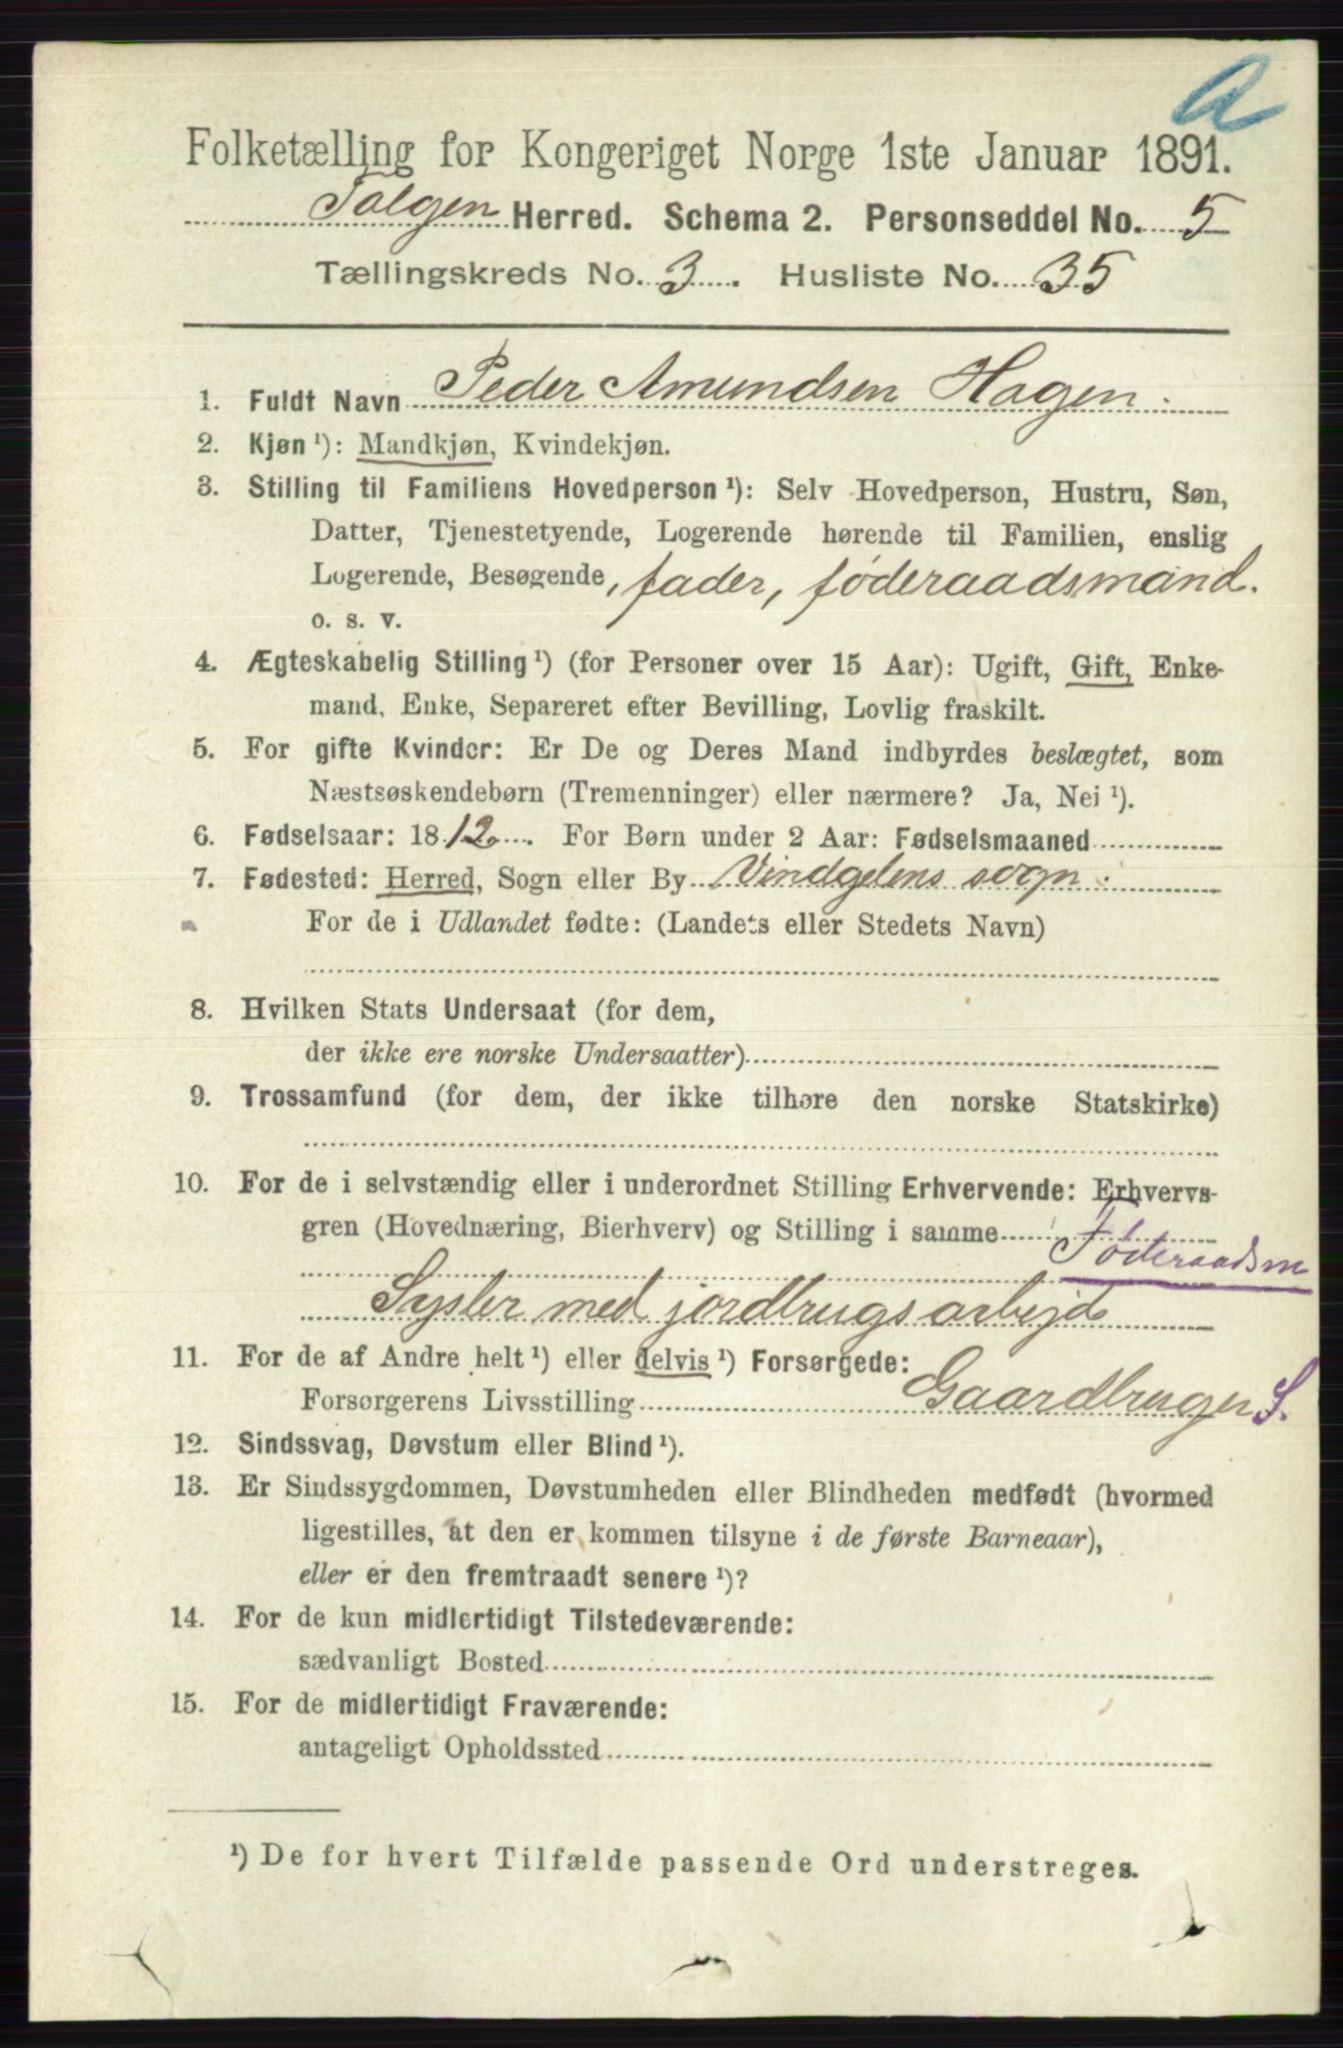 A
Folketælling for Kongeriget Norge 1ste Januar 1891.
Tolgen Herred. Schema 2. Personseddel No. 5
Tællingskreds No. 3. Husliste No. 35
1. Fuldt Navn Peder Amundsen Hagen.
2. Kjøn ¹): Mandkjøn, Kvindekjøn.
3. Stilling til Familiens Hovedperson ¹): Selv Hovedperson, Hustru, Søn,
Datter, Tjenestetyende, Logerende hørende til Familien, enslig
Logerende, Besøgende, fader, føderaadsmand.
o. s. v.
4. Ægteskabelig Stilling ¹) (for Personer over 15 Aar): Ugift, Gift, Enke-
mand, Enke, Separeret efter Bevilling, Lovlig fraskilt.
5. For gifte Kvinder: Er De og Deres Mand indbyrdes beslægtet, som
Næstsøskendebørn (Tremenninger) eller nærmere? Ja, Nei ¹).
6. Fødselsaar: 1812. For Børn under 2 Aar: Fødselsmaaned
7. Fødested: Herred, Sogn eller By Vindgelens sogn.
For de i Udlandet fødte: (Landets eller Stedets Navn)
8. Hvilken Stats Undersaat (for dem,
der ikke ere norske Undersaatter)
9. Trossamfund (for dem, der ikke tilhøre den norske Statskirke)
10. For de i selvstændig eller i underordnet Stilling Erhvervende: Erhvervs-
gren (Hovednæring, Bierhverv) og Stilling i samme
Føderaadsm
Sysler med jordbrugsarbejd
11. For de af Andre helt ¹) eller delvis ¹) Forsørgede:
Forsørgerens Livsstilling Gaardbruger S.
12. Sindssvag, Døvstum eller Blind ¹).
13. Er Sindssygdommen, Døvstumheden eller Blindheden medfødt (hvormed
ligestilles, at den er kommen tilsyne i de første Barneaar),
eller er den fremtraadt senere ¹)?
14. For de kun midlertidigt Tilstedeværende:
sædvanligt Bosted
15. For de midlertidigt Fraværende:
antageligt Opholdssted
¹) De for hvert Tilfælde passende Ord understreges.